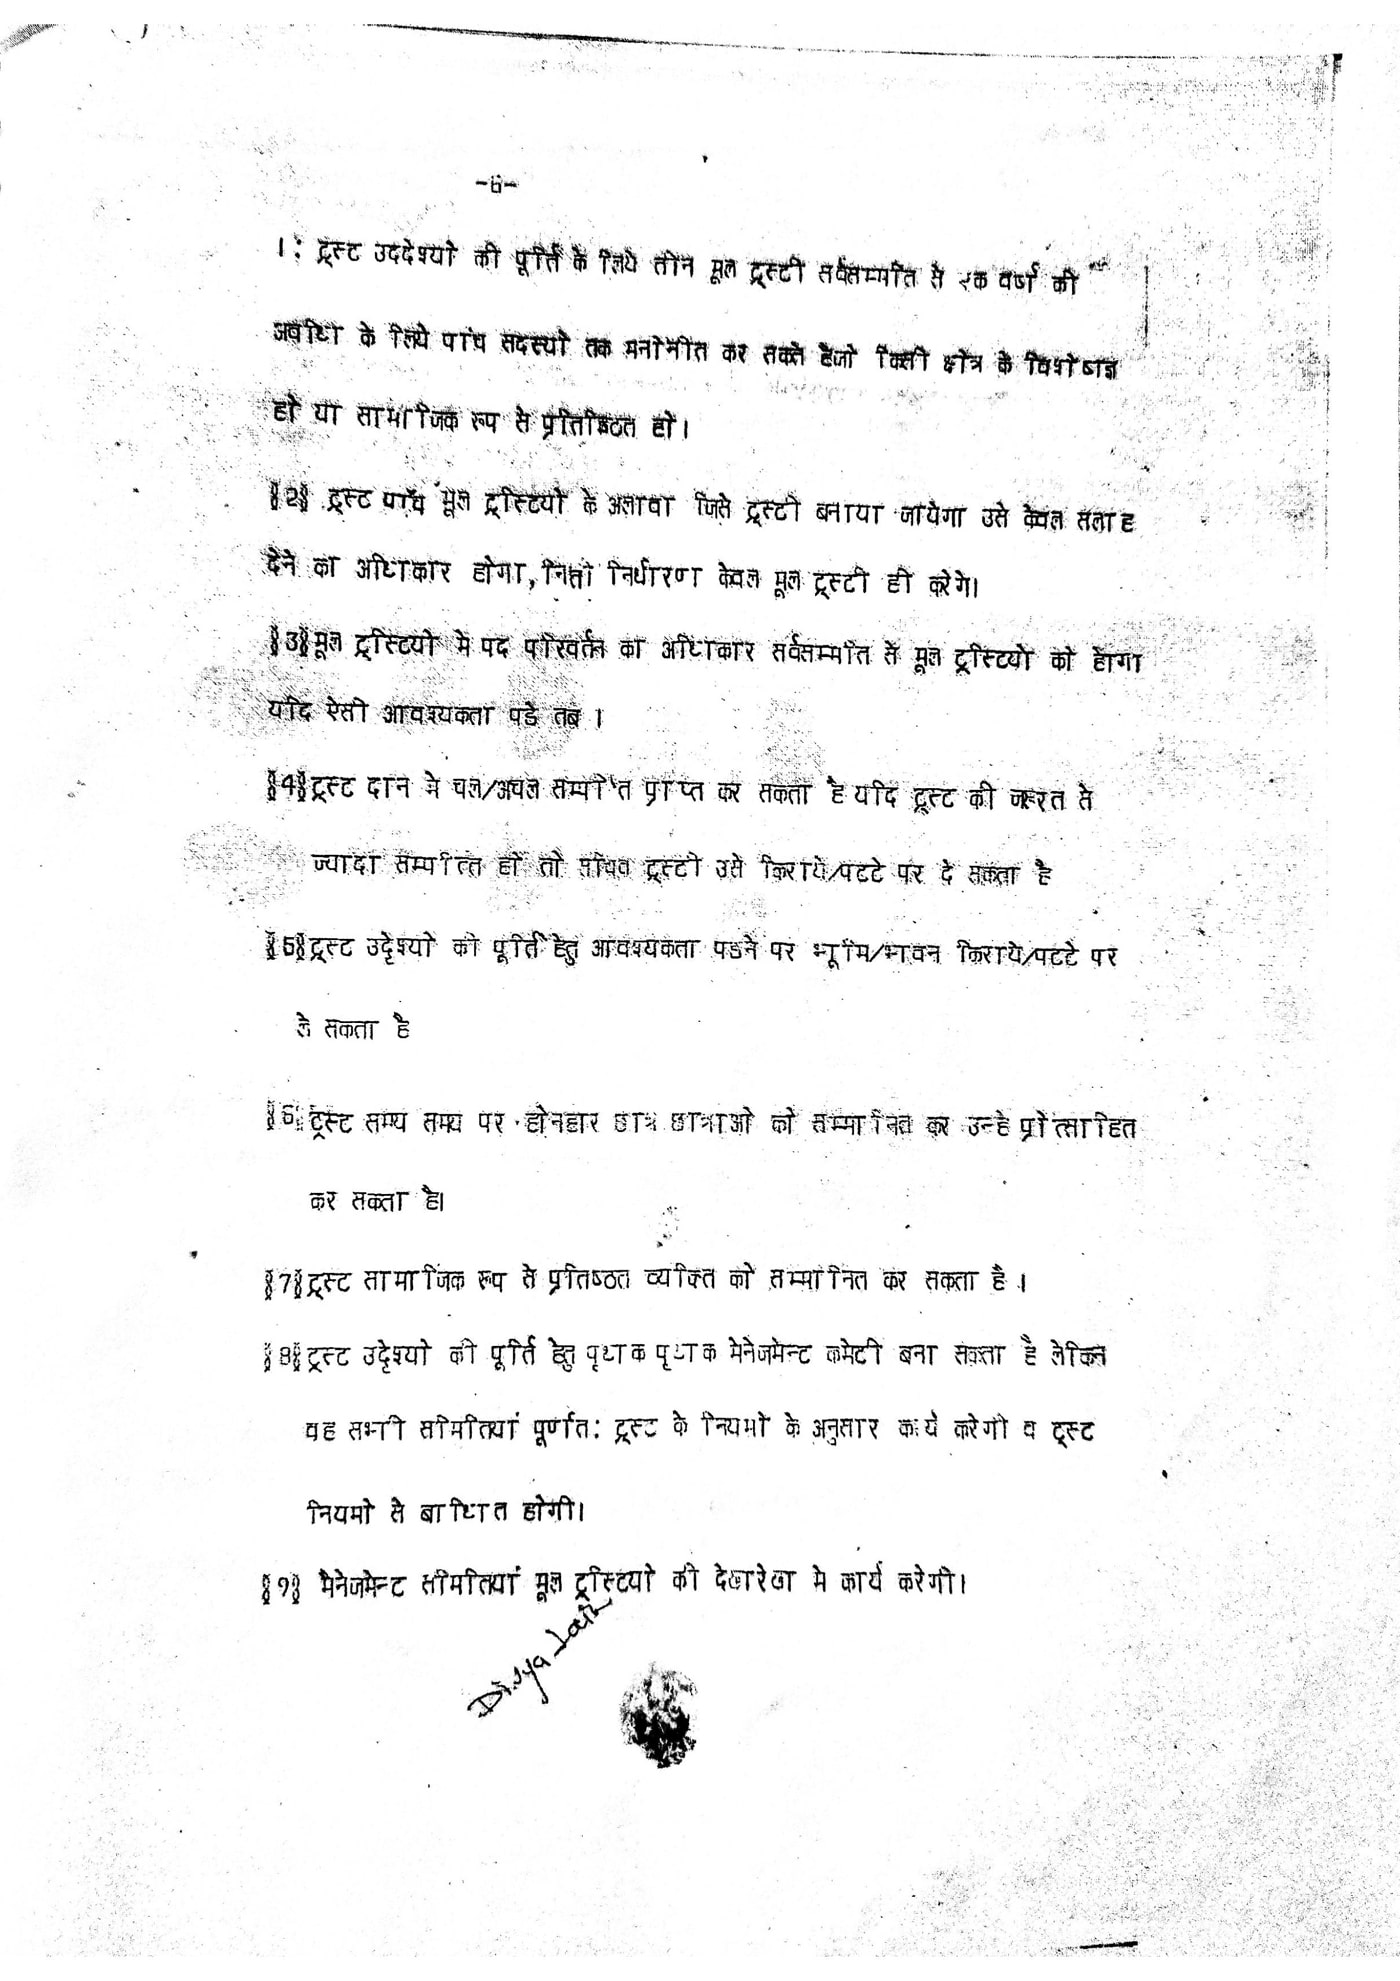 -6-
1: ट्रस्ट उददेश्यो की पूर्ति के लिये तीन मूल ट्रस्टी सर्वसम्मति से एक वर्ष की
अवधि के लिये पांच सदस्यो तक मनोनीत कर सकते हैजो किसी क्षेत्र के विशेषज्ञ
हो या सामाजिक रूप से प्रतिष्ठित हो।
§2§ ट्रस्ट पाँच मूल ट्रस्टियो के अलावा जिसे ट्रस्टी बनाया जायेगा उसे केवल सलाह
देने का अधिकार होगा, निती निर्धारण केवल मूल ट्रस्टी ही करेगे।
§3§मूल ट्रस्टियो मे पद परिवर्तन का अधिकार सर्वसम्मति से मूल ट्रस्टियो को होगा
यदि ऐसी आवश्यकता पडे तब ।
§4§ट्रस्ट दान मे चल/अचल सम्पति प्राप्त कर सकता है यदि ट्रस्ट की जरूरत से
ज्यादा सम्पत्ति हो तो सचिव ट्रस्टी उसे किराये/पटटे पर दे सकता है
§5§ट्रस्ट उद्देश्यो की पूर्ति हेतु आवश्यकता पडने पर भूमि/भवन किराये/पटटे पर
ले सकता है
§6§ट्रस्ट समय समय पर होनहार छात्र छात्राओ को सम्मानित कर उन्हे प्रोत्साहित
कर सकता है।
§7§ट्रस्ट सामाजिक रूप से प्रतिष्ठत व्यक्ति को सम्मानित कर सकता है ।
§8§ट्रस्ट उद्देश्यो की पूर्ति हेतु पृथक पृथक मेनेजमेन्ट कमेटी बना सकता है लेकिन
वह सभी समितियां पूर्णत: ट्रस्ट के नियमो के अनुसार कार्य करेगी व ट्रस्ट
नियमो से बाधित होगी।
§9§ मैनेजमेन्ट समितियां मूल ट्रस्टियो की देखरेख मे कार्य करेगी।
Divya Jain